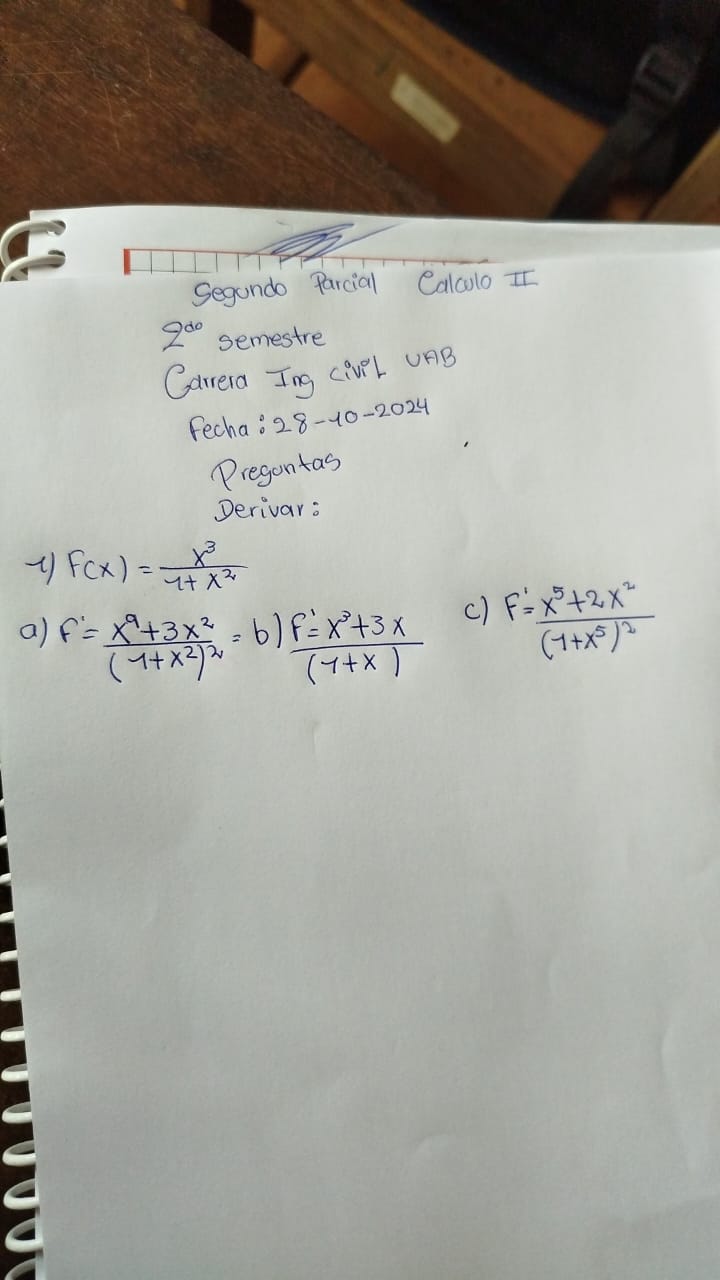 Segundo Parcial Calculo II
2do semestre
Carrera Ing civil UAB
Fecha: 28-10-2024
Preguntas
Derivar:
1) F(x) = x³/(1+x²)
a) f' = (x⁹+3x²)/(1+x²)² = b) f' = (x³+3x)/(1+x) c) F' = (x⁵+2x²)/(1+x⁵)²